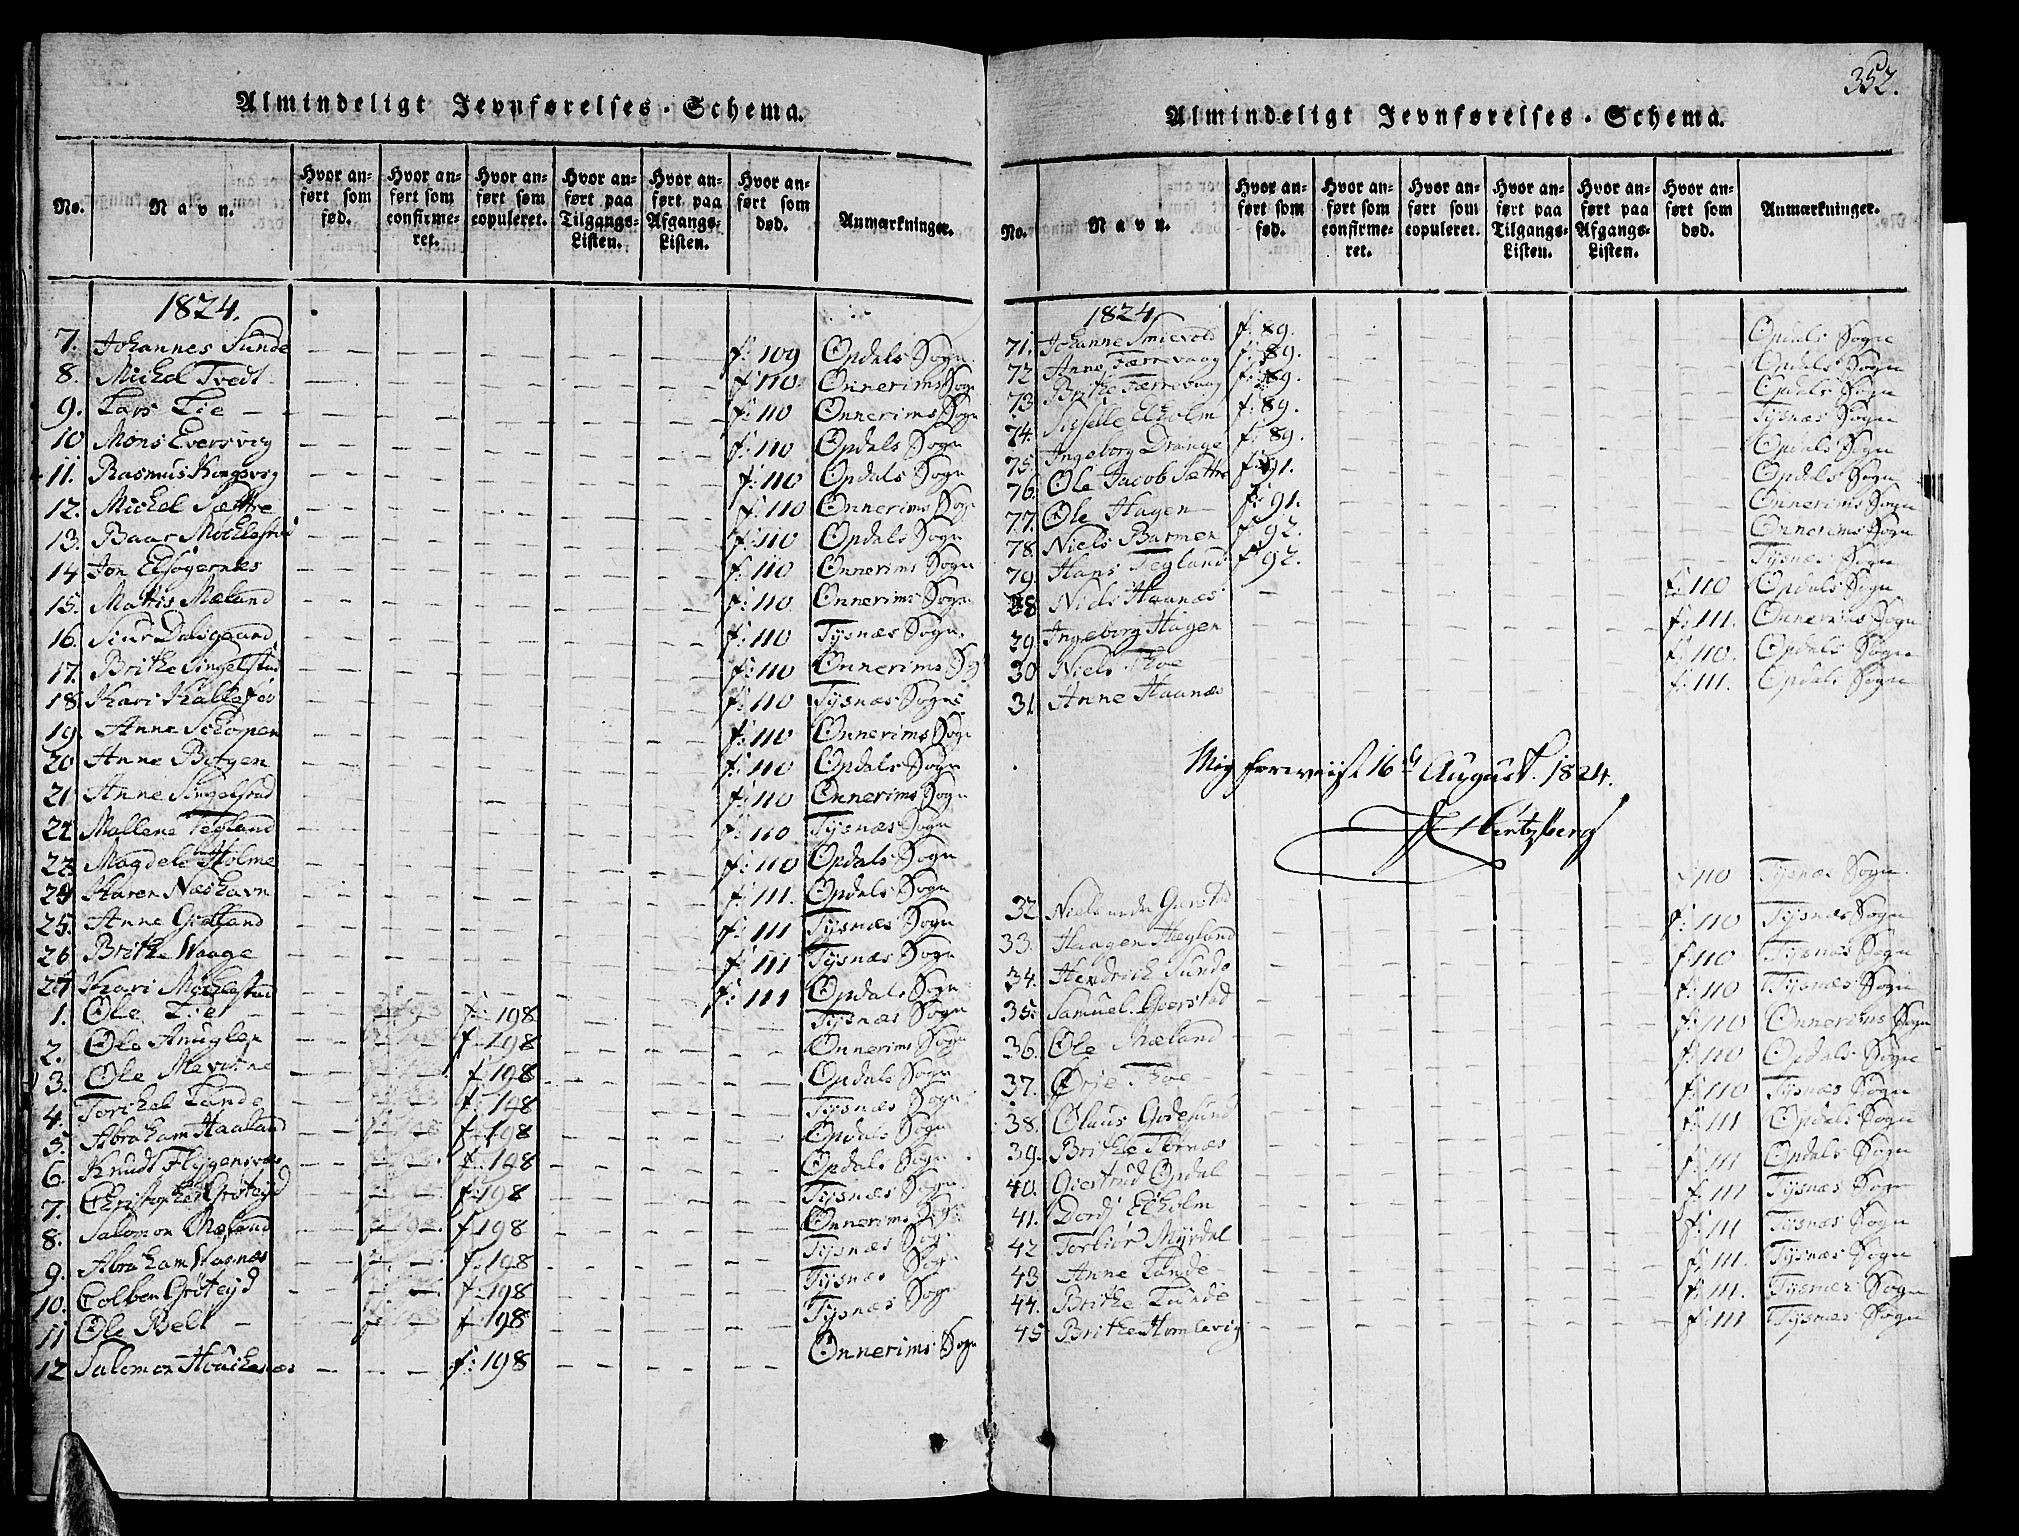 Almindeligt Jevnførelses-Schema.
No. Navn. Hvor anført som fød. Hvor anført som confirmeret. Hvor anført som copuleret. Hvor anført paa Tilgangs-Listen. Hvor anført paa Afgangs-Listen. Hvor anført som død. Anmærkninger.
1824.
7. Johannes Sunde f: 109 Opdals Sogn
8. Michel Tvedt f: 110. Onnerims Sogn
9. Lars Lie f: 110 Onnerims Sogn
10 Mons Eversvig f: 110 Opdals Sogn
11. Rasmus Kongsvig f: 110 Opdals Sogn
12. Michel Sættre f: 110 Onnerims Sogn
13. Baar Mochlestad f: 110 Opdals Sogn
14 Jon Elsøgernes f: 110 Onnerims Sogn
15. Mattis Mæland f: 110 Onnerims Sogn
16. Siur Dalsgaard f: 110 Tysnæs Sogn
17. Brithe Singelstad f: 110 Onnerims Sogn
18. Kari Kallestad f: 110 Tysnæs Sogn
19. Anne Scorpen f: 110 Onnerims Sogn
20 Anne Bergen f: 110 Opdals Sogn
21 Anne Singelstad f: 110 Onnerims Sogn
22 Mallene Tegland f: 110 Tysnæs Sogn
23 Magdele Holme f: 110 Opdals Sogn
24 Karen Næshavn f: 111. Opdals Sogn
25. Anne Gietland f: 111 Tysnæs Sogn
26 Brithe Waage f: 111 Tysnæs Sogn
27 Kari Mochlestad f: 111 Opdals Sogn
1. Ole Lie f: 198 Tysnæs Sogn
2. Ole Anuglen f: 198 Onnerims Sogn
3. Ole Mevatne f: 198 Opdals Sogn
4. Torchel Lande f: 198 Tysnæs Sogn
5. Abraham Haaland f: 198 Opdals Sogn
6. Knudt Flygensvær f: 198 Opdals Sogn
7. Christopher Grøteyd f: 198 Tysnæs Sogn
8. Salomon Mæland f: 198 Onnerims Sogn
9. Abraham Vaanæs f: 198 Tysnæs Sogn
10. Colben Grøteyd f: 198 Tysnæs Sogn
11 Ole Belt f: 198 Tysnæs Sogn
12 Salomon Houchenæs f: 198 Onnerims Sogn
352.
Almindeligt Jevnførelses-Schema.
No. Navn. Hvor anført som fød. Hvor anført som confirmeret. Hvor anført som copuleret. Hvor anført paa Tilgangs-Listen. Hvor anført paa Afgangs-Listen. Hvor anført som død. Anmærkninger.
1824
71. Johanne Smievold f: 89. Opdals Sogn
72 Anne Færrevaag f: 89. Opdals Sogn
73 Brithe Færrevaag f: 89. Opdals Sogn
74. Sisselle Eholm f: 89. Tysnæs Sogn
75. Ingeborg Drange f: 89. Opdals Sogn
76. Ole Jacob Sættre f: 91. Opdals Sogn
77. Ole Hagen f: 91. Onnerims Sogn
78. Niels Barmen f: 92. Onnerims Sogn
79. Hans Tegland f: 92. Tysnæs Sogn
28 Niels Haanæs f: 110 Opdals Sogn
29. Ingeborg Hagen f: 111. Onnerims Sogn
30 Niels Thoe f: 110. Opdals Sogn
31 Anne Haanæs f: 111. Opdals Sogn
Mig forreviist 16de August. 1824.
Hertzberg
32. Niels Gierstad f: 110 Tysnæs Sogn
33. Haagen Hægland f: 110 Tysnæs Sogn
34. Hendrich Sunde f: 110 Tysnæs Sogn
35. Samuel Gierstad f: 110 Tysnæs Sogn
36. Ole Mæland f: 110 Onnerims Sogn
37. Orie Thoe f: 110 Opdals Sogn
38. Olaus Godøsund f: 110 Tysnæs Sogn
39. Brithe Tornæs f: 111 Opdals Sogn
40. Giertrud Opdal f: 111 Opdals Sogn
41. Dordj Eholm f: 111 Tysnæs Sogn
42 Torbiør Myrdal f: 111 Tysnæs Sogn
43 Anne Lande f: 111. Tysnæs Sogn
44. Brithe Lunde f: 111. Tysnæs Sogn
45 Brithe Homlevig f: 111 Tysnæs Sogn